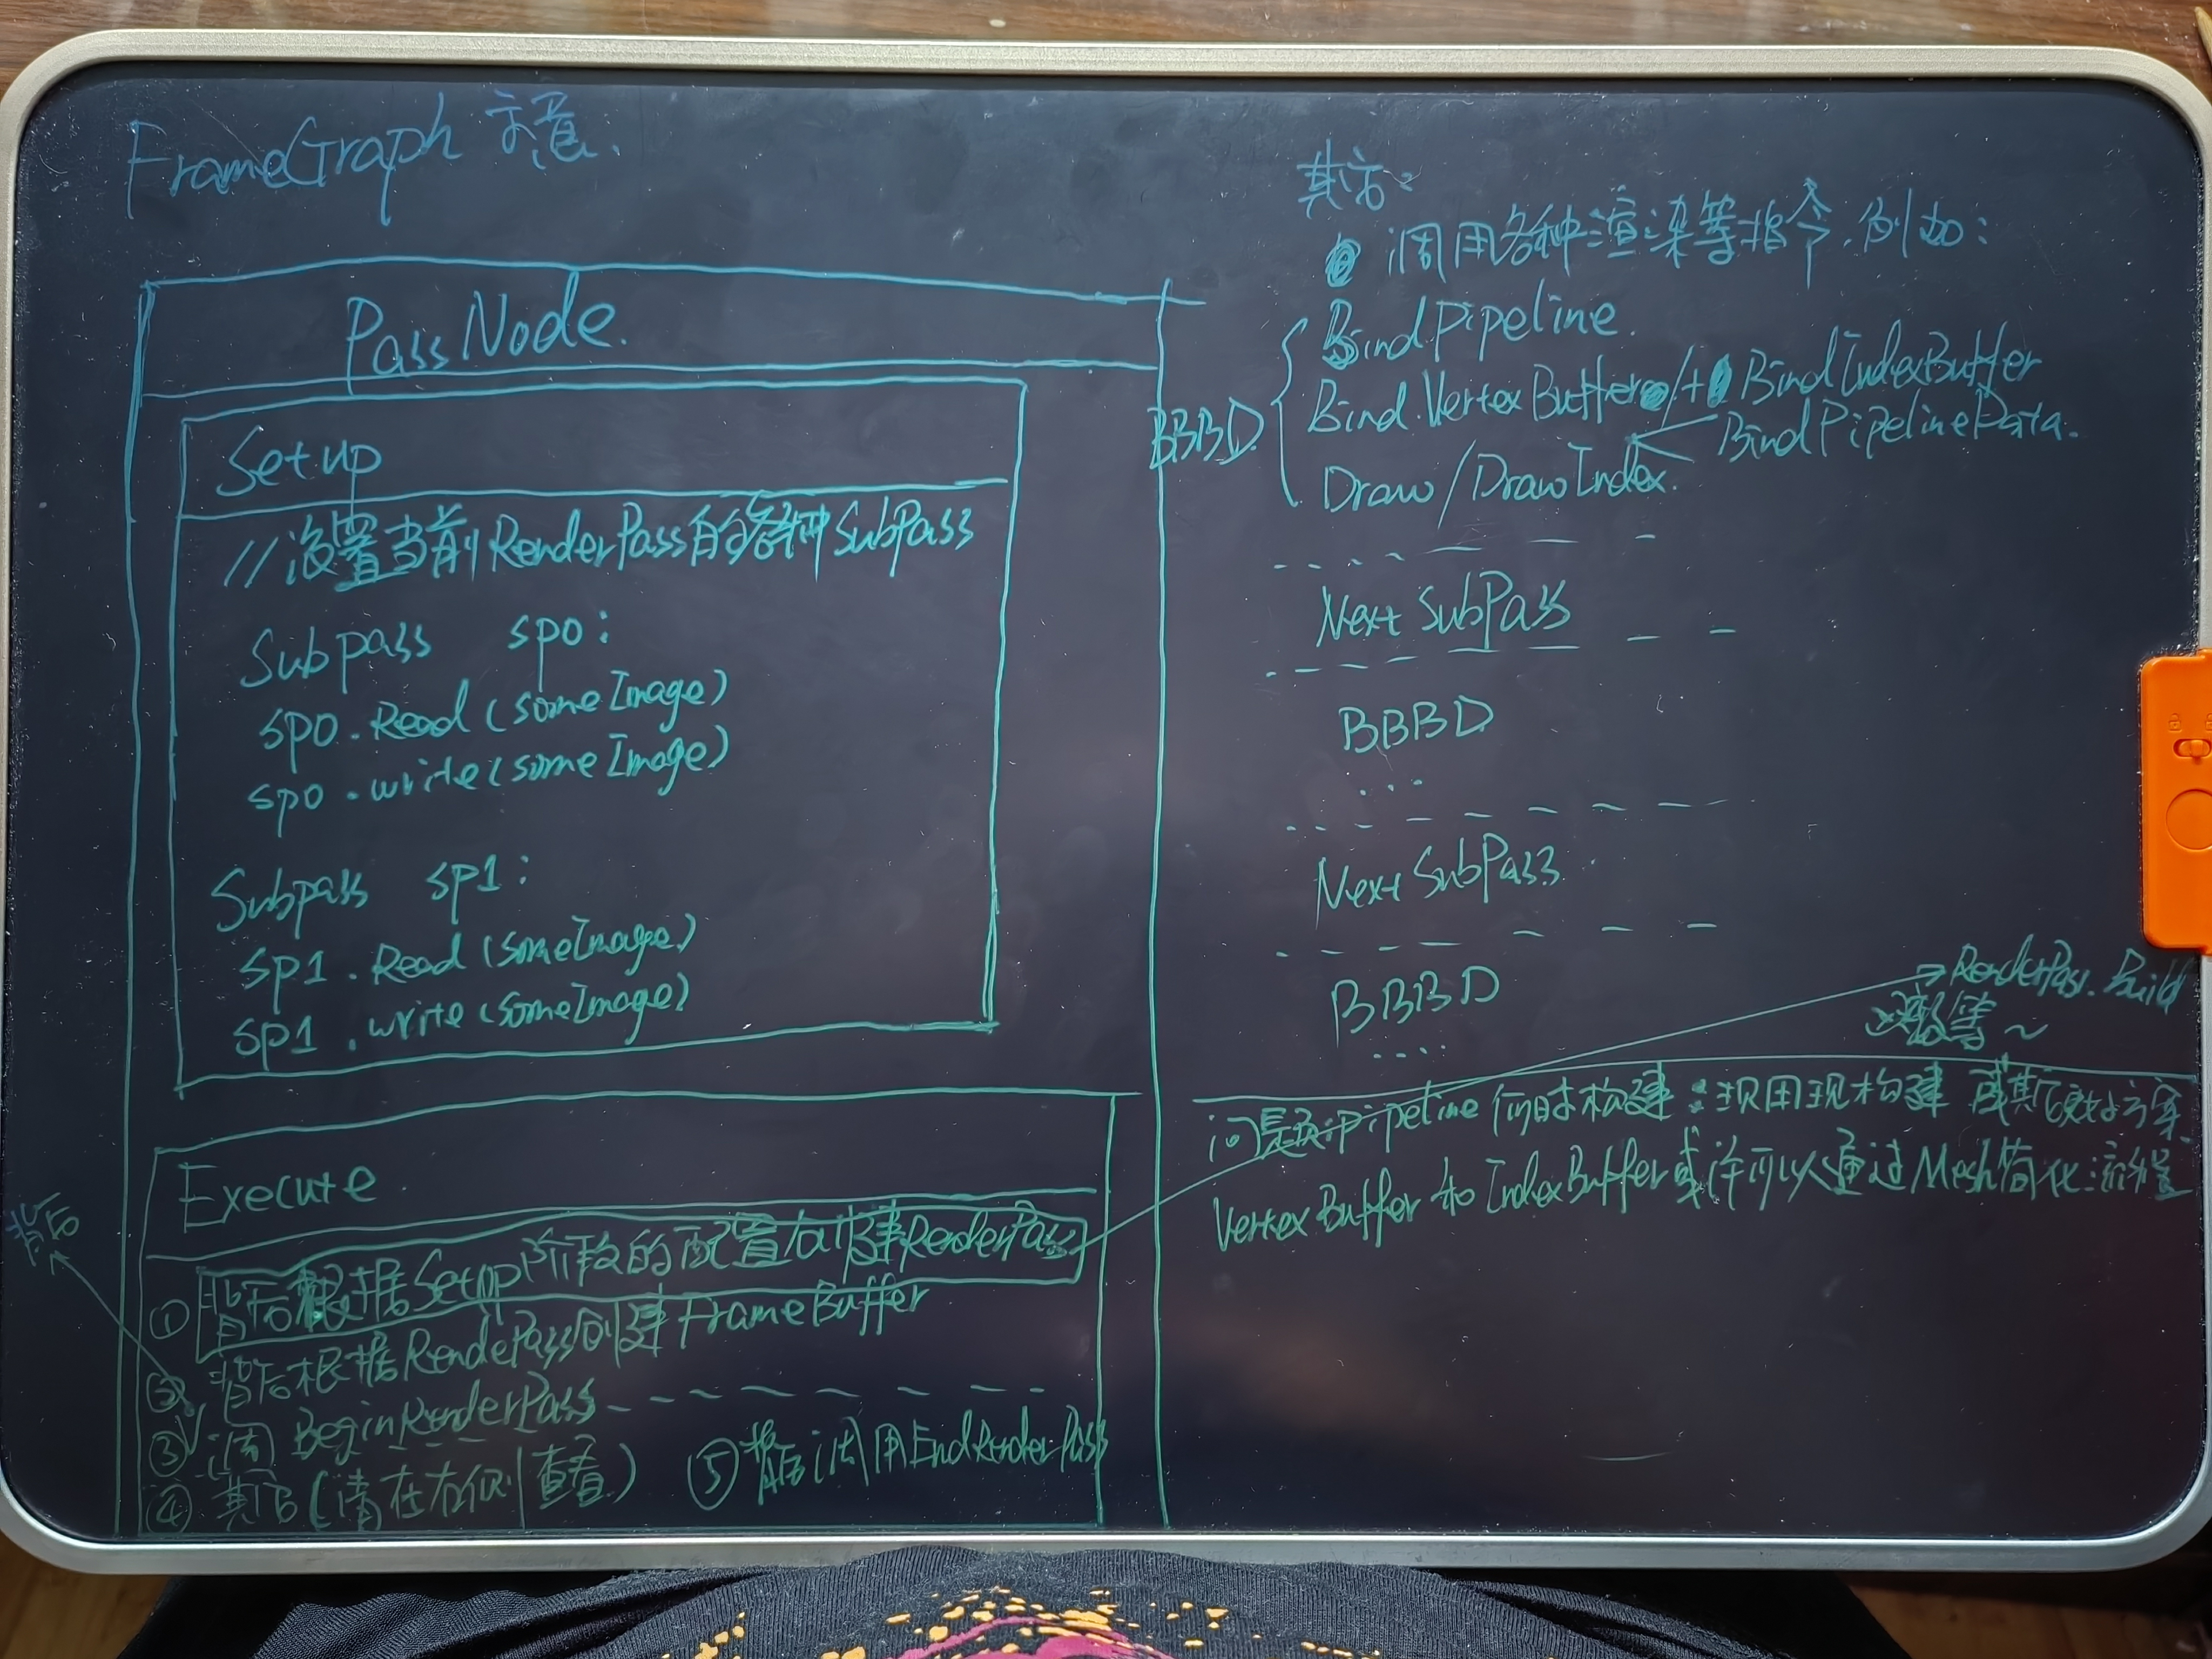 FrameGraph 示意.
PassNode.
Setup
//设置当前RenderPass的各种SubPass
Subpass sp0:
sp0.Read(someImage)
sp0.write(someImage)
Subpass sp1:
sp1.Read(someImage)
sp1.write(someImage)
Execute
① 背后根据Setup阶段的配置创建RenderPass
② 背后根据RenderPass创建FrameBuffer
③ 调 BeginRenderPass
背后
④ 其它(请在右侧查看)
⑤ 背后调用EndRenderPass
其它:
调用各种渲染等指令.例如:
BBBD
BindPipeline.
Bind.VertexBuffer/+BindIndexBuffer
BindPipelineData.
Draw/DrawIndex.
Next SubPass
BBBD
...
Next SubPass
BBBD
....
RenderPass.Build
等~
问题:pipeline何时构建:现用现构建 或其它更好方案.
VertexBuffer to IndexBuffer或许可以通过Mesh简化流程